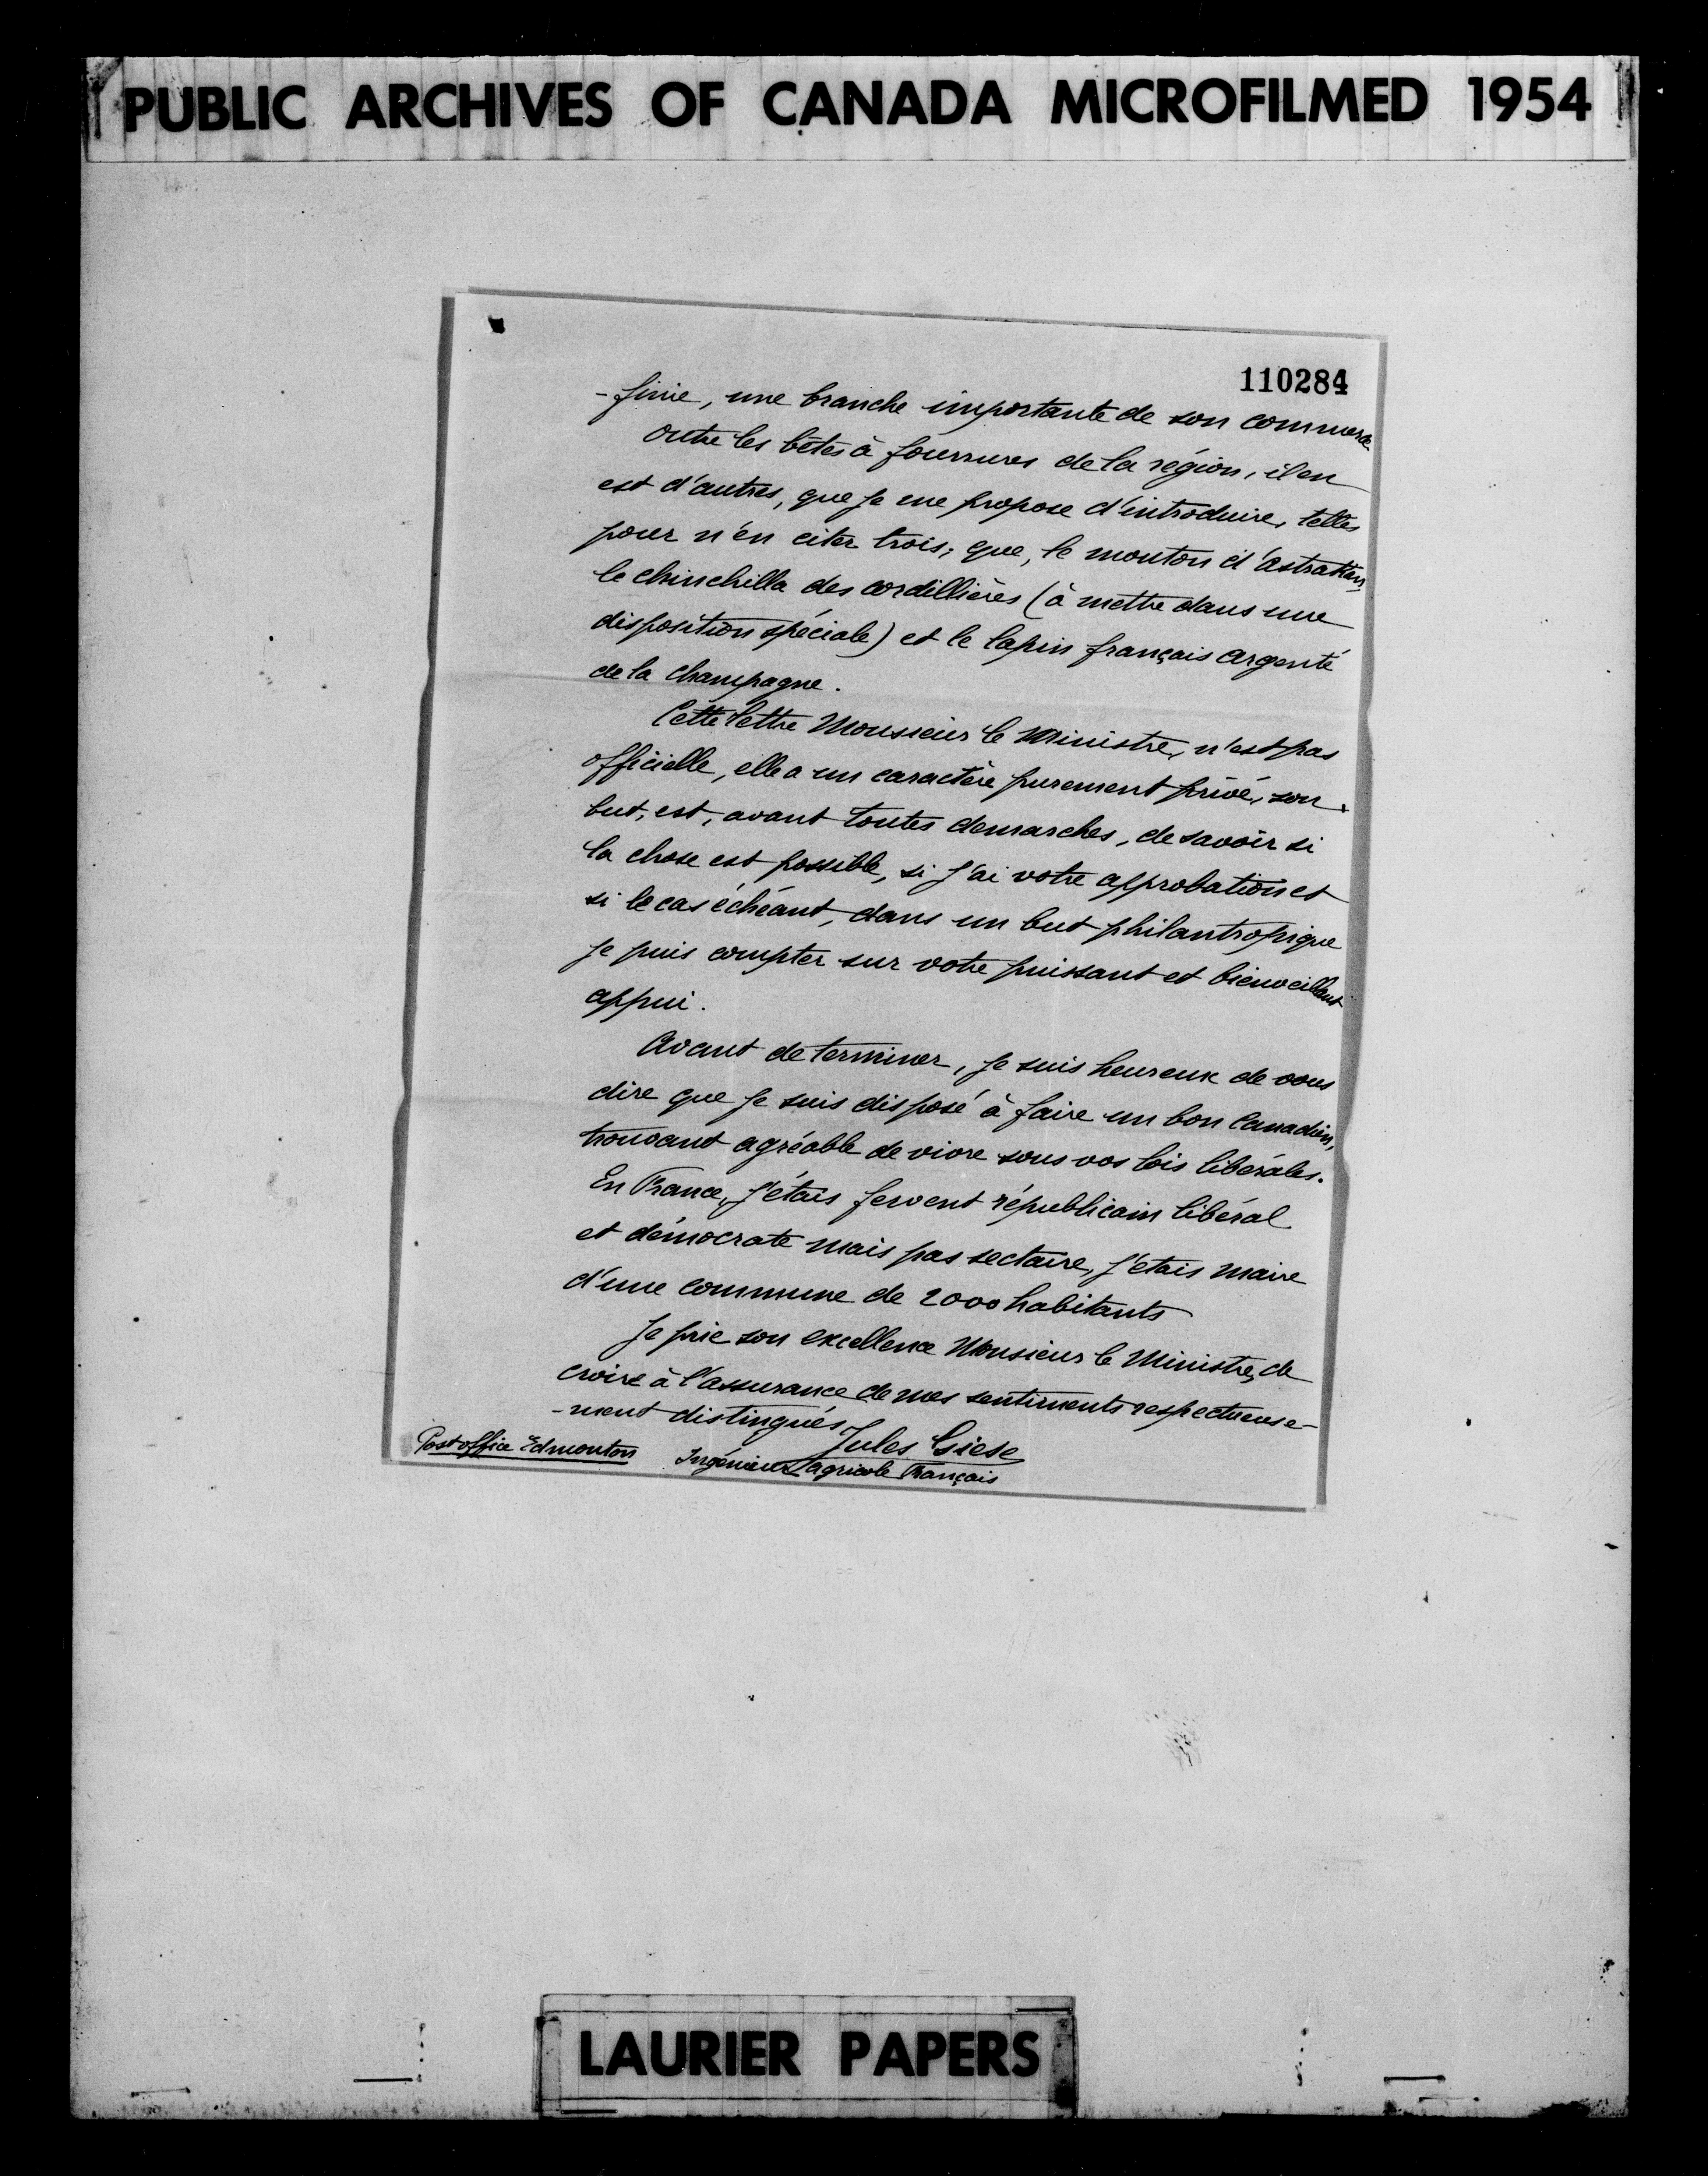 PUBLIC ARCHIVES OF CANADA MICROFILMED 1954
110284
-finie, une branche importante de son commerce
Outre les bêtes à fourrures de la région, il en
est d'autres, que je me propose d'introduire, telles
pour n'en citer trois, que, le mouton d'astrakan,
le chinchilla des cordillières (à mettre dans une
disposition spéciale) et le lapin français argenté
de la Champagne.
Cette lettre Monsieur le Ministre, n'est pas
officielle, elle a un caractère purement privé, son
but, est, avant toutes demarches, de savoir si
la chose est possible, si j'ai votre approbation et
si le cas échéant, dans un but philantropique
je puis compter sur votre puissant et bienveillant
appui.
Avant de terminer, je suis heureux de vous
dire que je suis disposé à faire un bon Canadien,
trouvant agréable de vivre sous vos lois libérales.
En France, j'étais fervent républicain libéral
et démocrate mais pas sectaire, j'etais maire
d'une commune de 2000 habitants
Je prie son excellence Monsieur le Ministre, de
croire à l'assurance de mes sentiments respectueuse-
-ment distingués
Jules Giese
Postoffice Edmonton Ingénieur agricole Français
LAURIER PAPERS